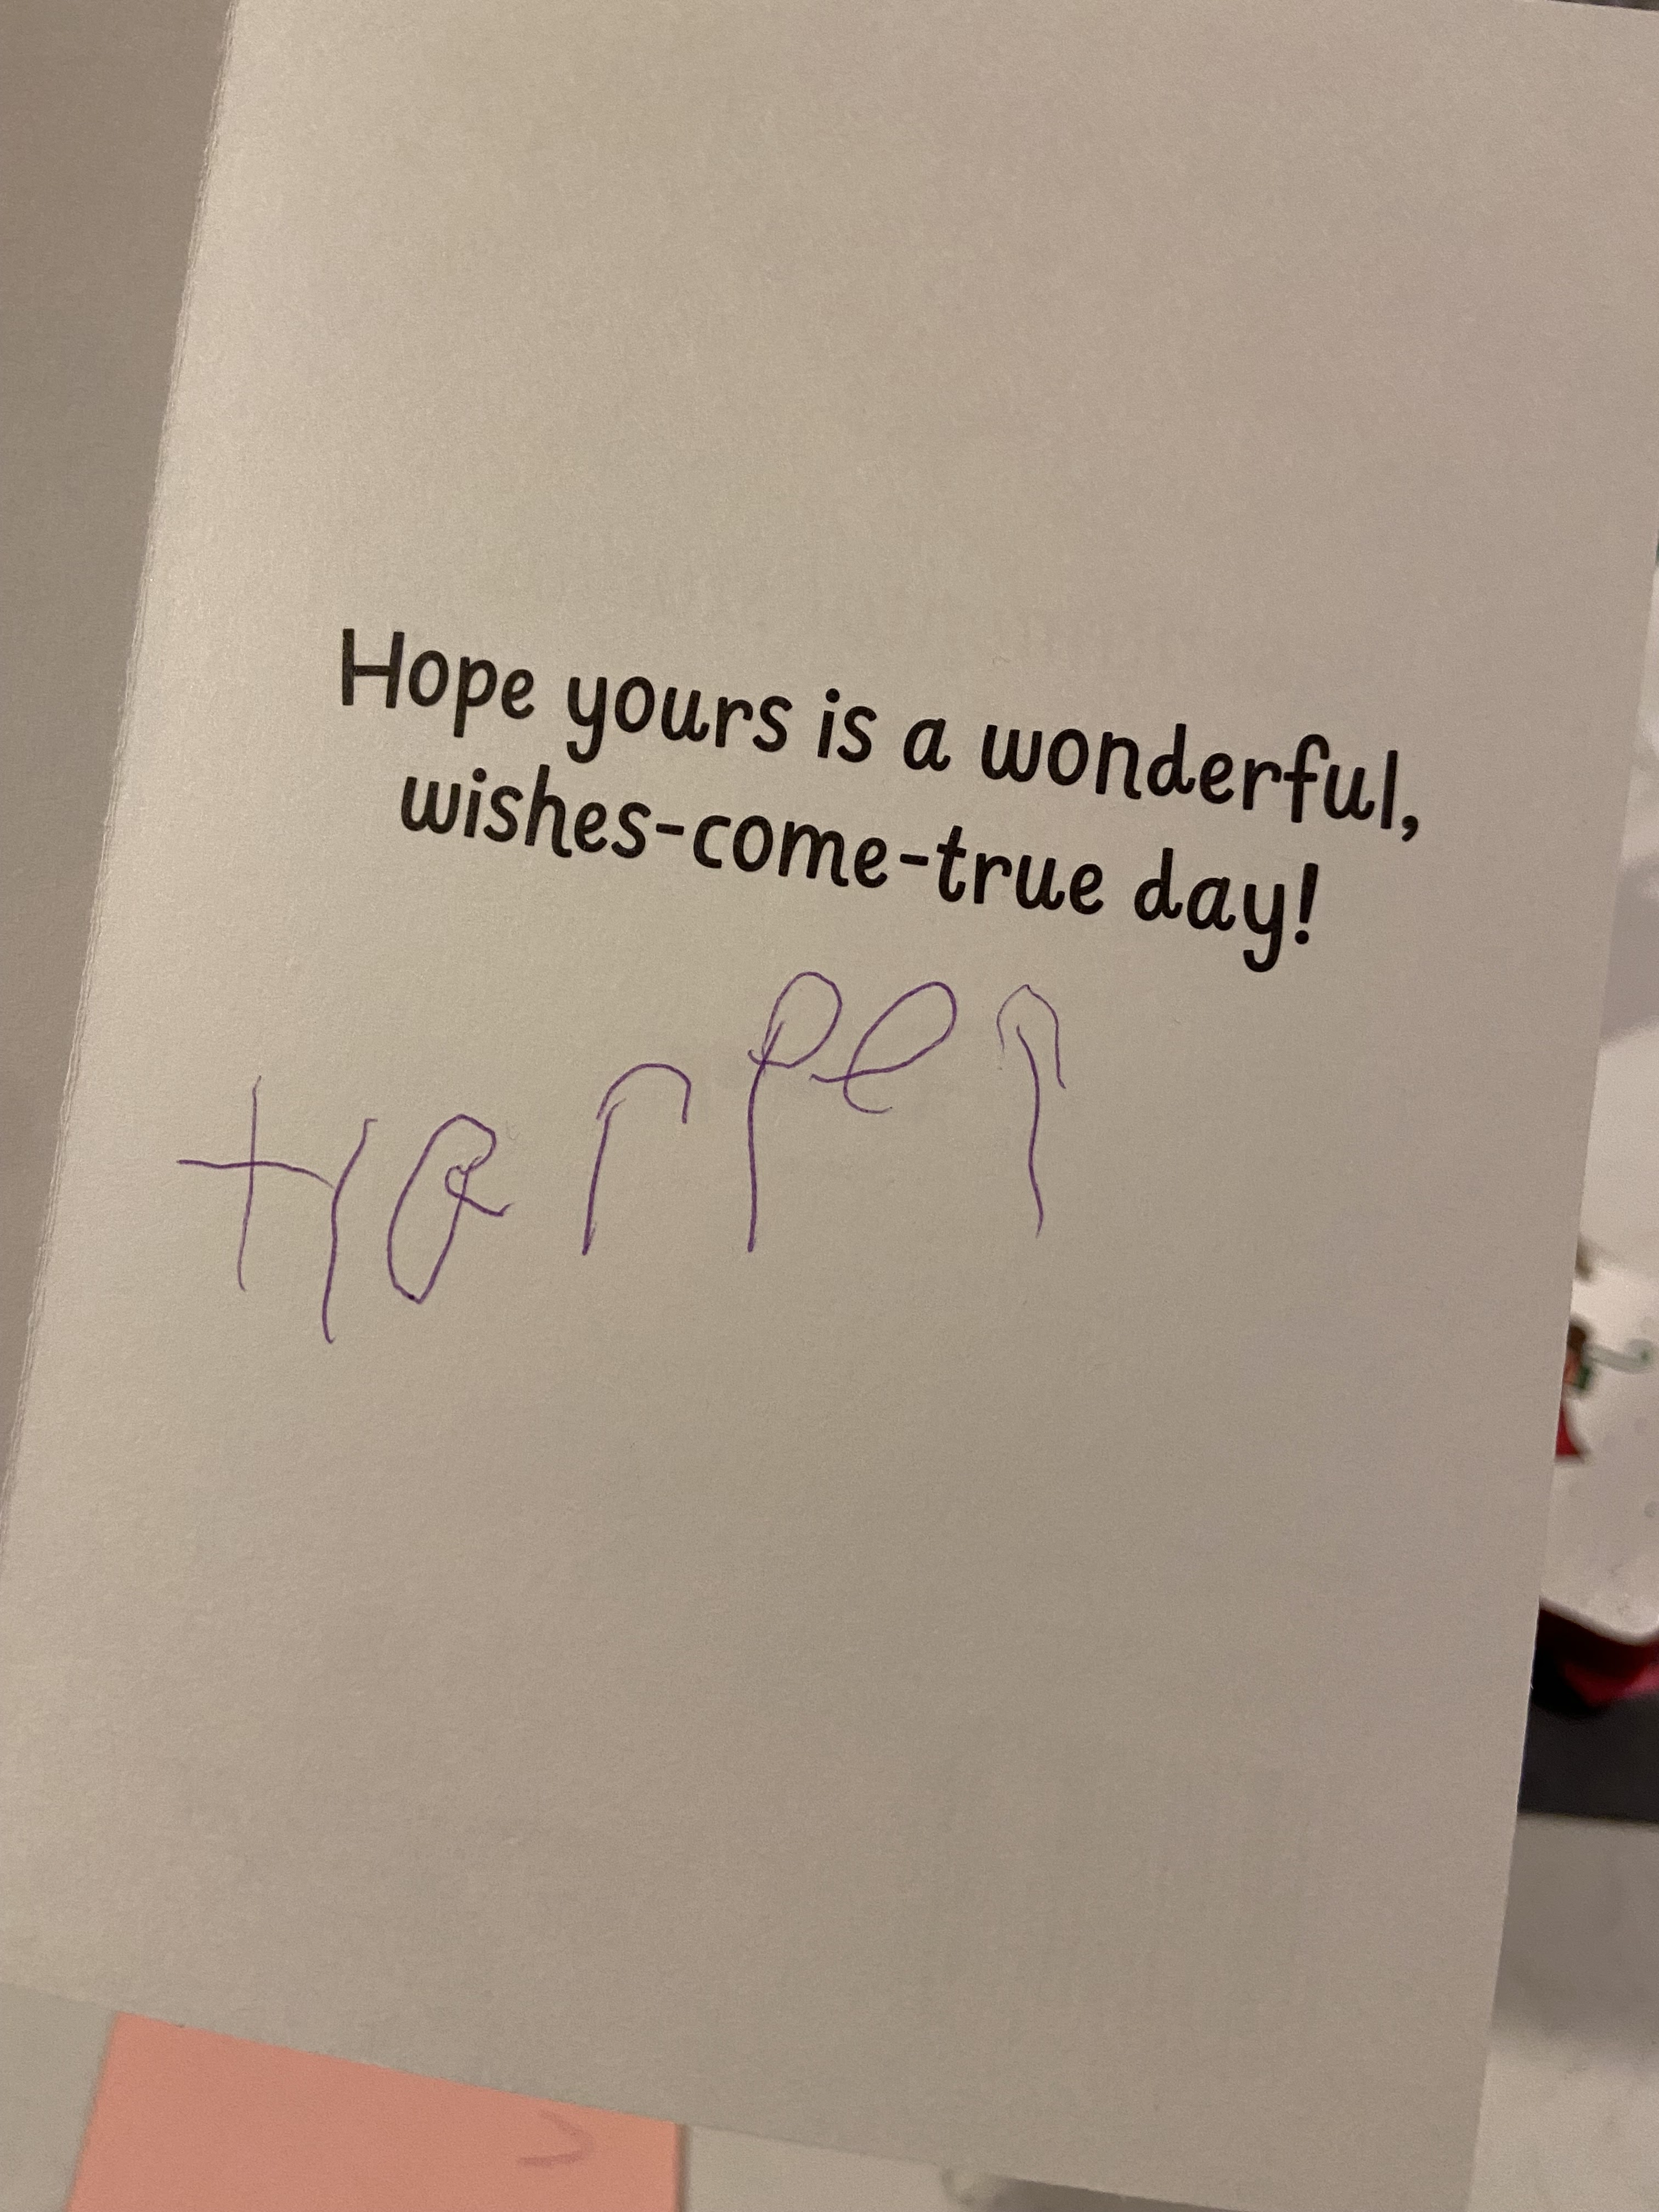 Hope yours is a wonderful,
wishes-come-true day!
Harper